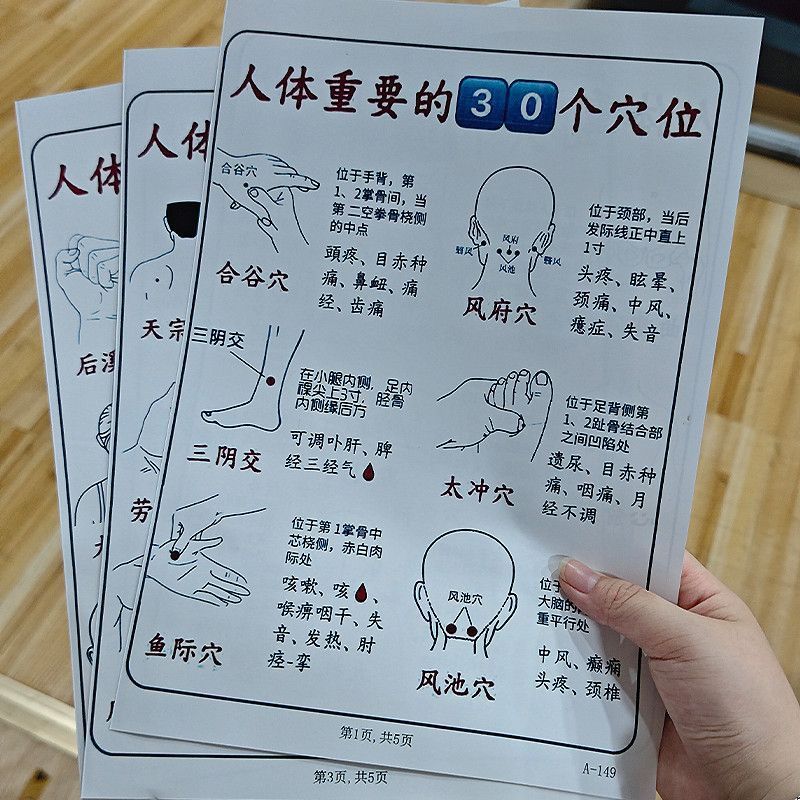 人体重要的30个穴位
合谷穴
位于手背，第
1、2掌骨间，当
第二空拳骨桡侧
的中点
頭疼、目赤种
痛、鼻衄、痛
经、齿痛
合谷穴
风府
翳风
翳风
风池
位于颈部，当后
发际线正中直上
1寸
头疼、眩晕、
颈痛、中风、
癔症、失音
风府穴
三阴交
在小腿内侧，足内
踝尖上3寸，胫骨
内侧缘后方
可调卟肝、脾
经三经气
三阴交
位于足背侧第
1、2趾骨结合部
之间凹陷处
遗尿、目赤种
痛、咽痛、月
经不调
太冲穴
位于第1掌骨中
芯桡侧，赤白肉
际处
咳嗽、咳、
喉痹咽干、失
音、发热、肘
痉-挛
鱼际穴
风池穴
位于
大脑的
重平行处
中风、癫痫
头疼、颈椎
风池穴
第1页,共5页
A-149
人体
天宗
劳
人体
后溪
第3页,共5页